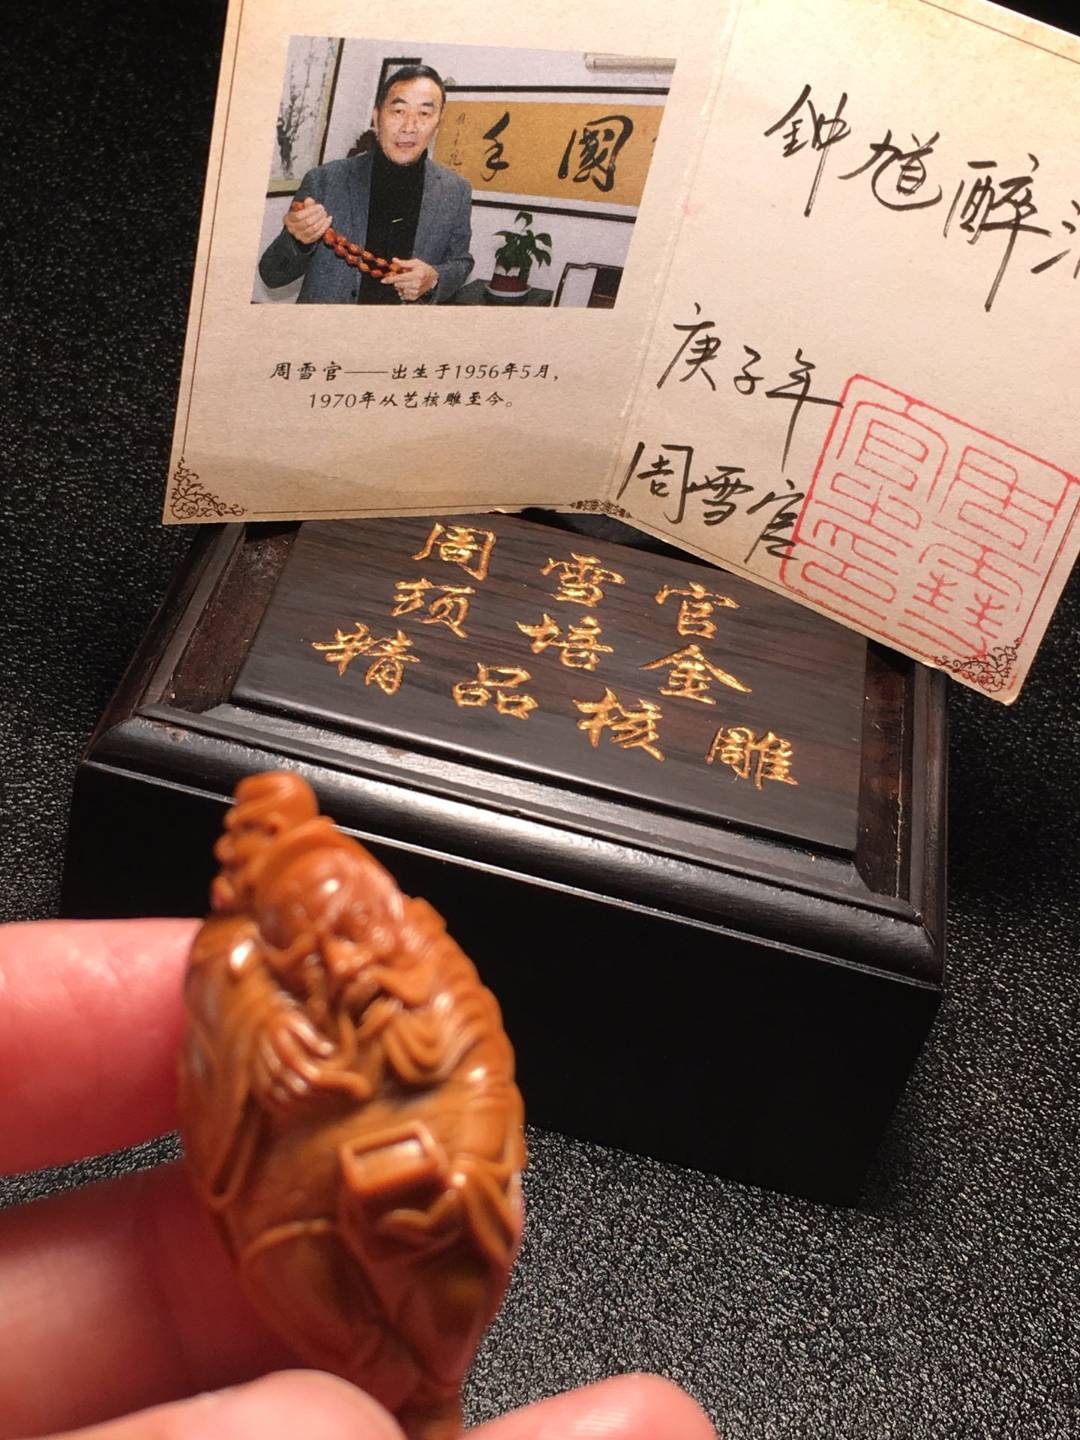 國手
周雪官——出生于1956年5月，
1970年从艺核雕至今。
钟馗醉
庚子年
周雪官
周雪官
须培金
精品核雕